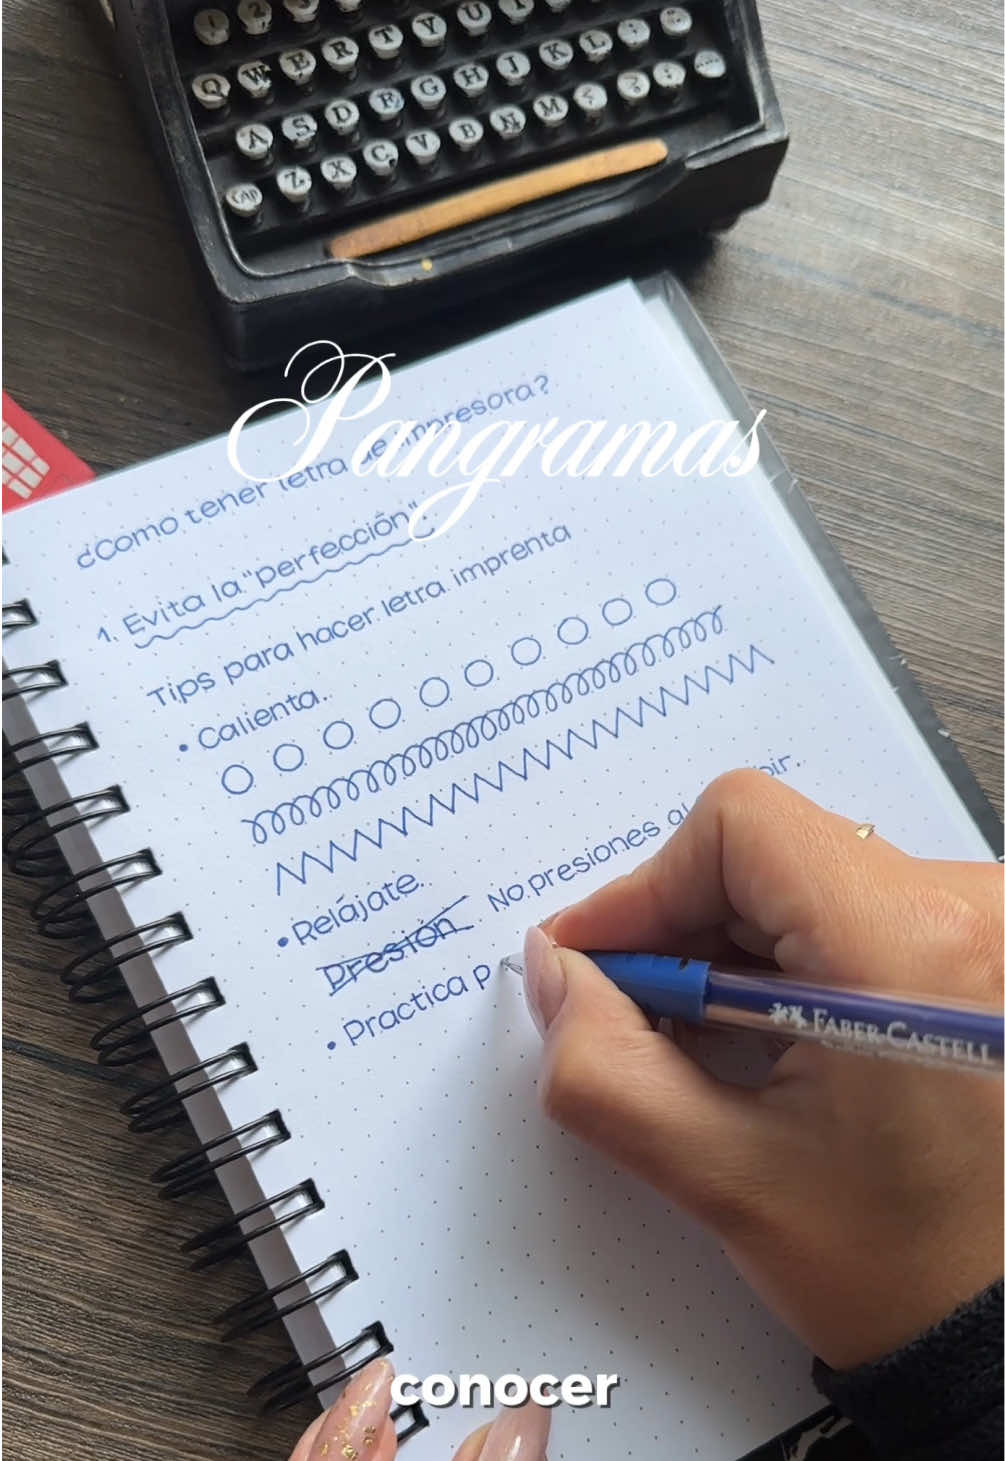 1 2 3
Q W E R T Y U I
A S D F G H J K L : ;
CAP Z X C V B N M
Pangramas
¿Como tener letra de impresora?
1. Evita la "perfección".
Tips para hacer letra imprenta
• Calienta.
• Relájate.
Presión No presiones al
• Practica p
FABER-CASTELL
conocer